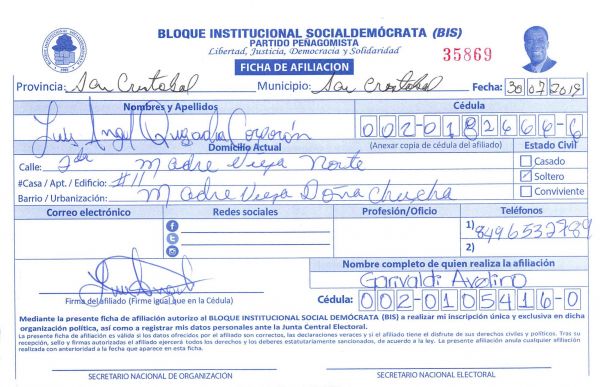 BLOQUE INSTITUCIONAL SOCIALDEMÓCRATA (BIS)
PARTIDO PEÑAGOMISTA
Libertad, Justicia, Democracia y Solidaridad
35869
FICHA DE AFILIACION
Provincia: San Cristobal Municipio: San Cristobal Fecha: 30 07 2019
Nombres y Apellidos Cédula
Luis Angel Corporán 002-0182666-6
Domicilio Actual (Anexar copia de cédula del afiliado) Estado Civil
Calle: 2da Madre Vieja Norte Casado
#Casa / Apt. / Edificio: #11 Soltero
Barrio / Urbanización: Madre Vieja Doña Chucha Conviviente
Correo electrónico Redes sociales Profesión/Oficio Teléfonos
1) 8496532789
2)
Nombre completo de quien realiza la afiliación
Garivaldi Avelino
Firma del afiliado (Firme igual que en la Cédula)
Cédula: 002-0105416-0
Mediante la presente ficha de afiliación autorizo al BLOQUE INSTITUCIONAL SOCIAL DEMÓCRATA (BIS) a realizar mi inscripción única y exclusiva en dicha
organización política, así como a registrar mis datos personales ante la Junta Central Electoral.
La presente ficha de afiliación es válida si los datos ofrecidos por el afiliado son correctos, las declaraciones veraces y si el afiliado tiene el disfrute de sus derechos civiles y políticos. Tras su
recepción, sello y firmas autorizadas el afiliado ejercerá todos los derechos y los deberes estatutariamente sancionados, de acuerdo a la ley. La presente afiliación anula cualquier afiliación
realizada con anterioridad a la fecha que aparece en esta ficha.
SECRETARIO NACIONAL DE ORGANIZACIÓN SECRETARIO NACIONAL ELECTORAL